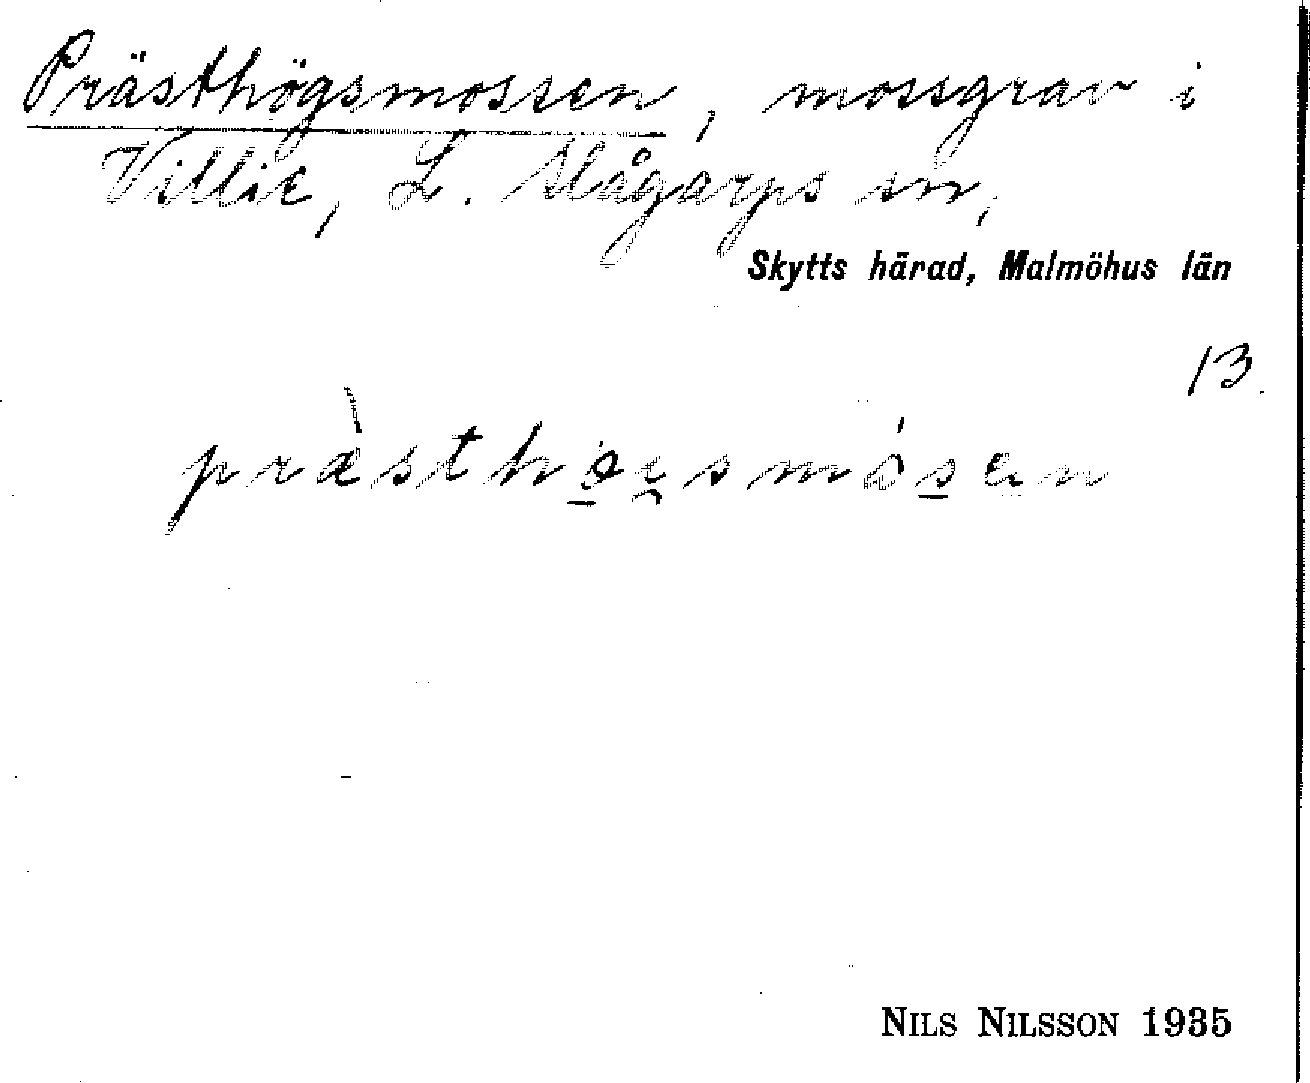 Prästhögsmossen, mossgrav i
Villie, L. Slågarps sn,
Skytts härad, Malmöhus län
13
NILS NILSSON 1935